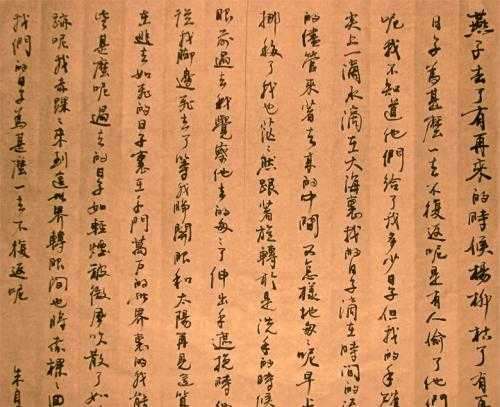 燕子去了有再來的時候楊柳枯了有再
日子為甚麼一去不復返呢是有人偷了他們
呢我不知道他們給了我多少日子但我的手確
尖上一滴水滴在大海裏我的日子滴在時間的
的儘管來着去來的中間又怎樣地匆々呢早上
挪移了我也茫々然跟着旋轉於是洗手的時候
眼前過去我覺察他去的匆々了伸出手遮挽時他
從我腳邊飛去了等我睜開眼和太陽再見這算
在逃去如飛的日子裏在千門萬戶的世界裏的我能
些甚麼呢過去的日子如輕煙被微風吹散了如
跡呢我赤裸々來到這世界轉眼間也將赤裸々回
我們的日子為甚麼一去不復返呢 朱自